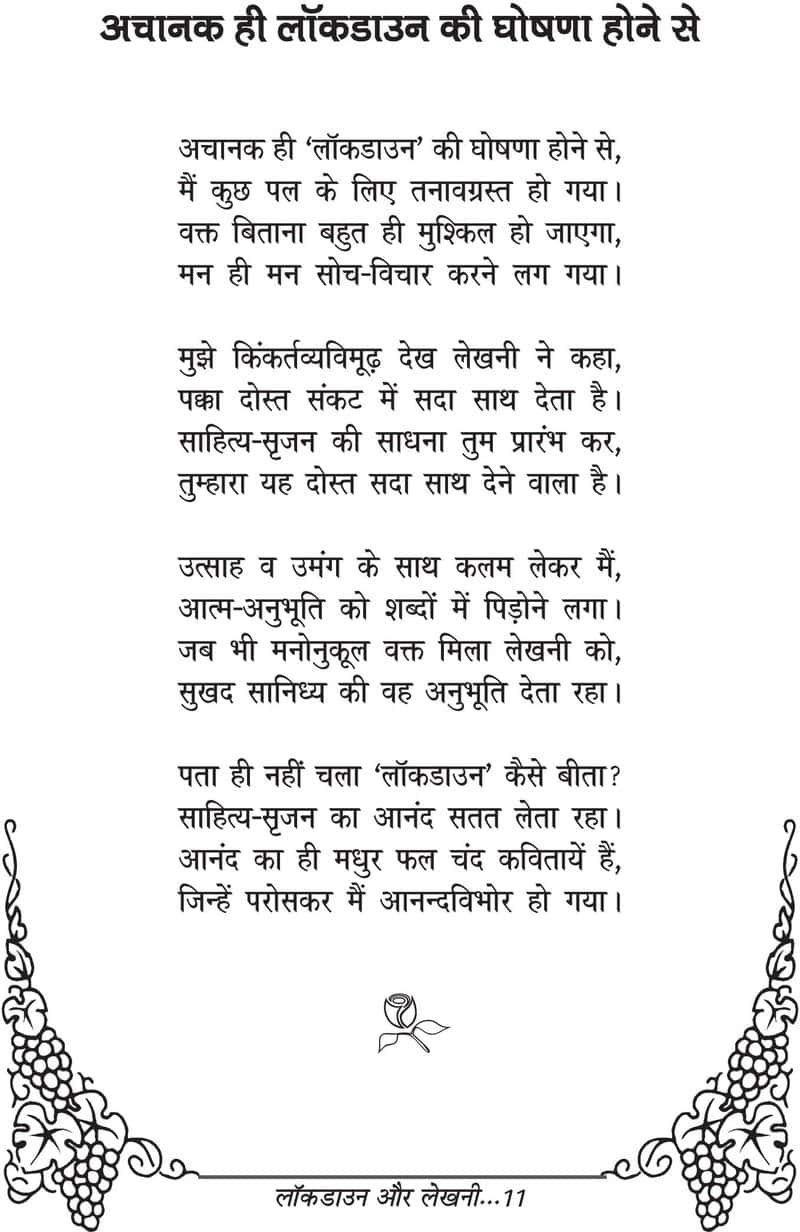 अचानक ही लॉकडाउन की घोषणा होने से
अचानक ही ‘लॉकडाउन’ की घोषणा होने से,
मैं कुछ पल के लिए तनावग्रस्त हो गया।
वक्त बिताना बहुत ही मुश्किल हो जाएगा,
मन ही मन सोच-विचार करने लग गया।
मुझे किंकर्तव्यविमूढ़ देख लेखनी ने कहा,
पक्का दोस्त संकट में सदा साथ देता है।
साहित्य-सृजन की साधना तुम प्रारंभ कर,
तुम्हारा यह दोस्त सदा साथ देने वाला है।
उत्साह व उमंग के साथ कलम लेकर मैं,
आत्म-अनुभूति को शब्दों में पिड़ोने लगा।
जब भी मनोनुकूल वक्त मिला लेखनी को,
सुखद सानिध्य की वह अनुभूति देता रहा।
पता ही नहीं चला ‘लॉकडाउन’ कैसे बीता?
साहित्य-सृजन का आनंद सतत लेता रहा।
आनंद का ही मधुर फल चंद कवितायें हैं,
जिन्हें परोसकर मैं आनन्दविभोर हो गया।
लॉकडाउन और लेखनी...11